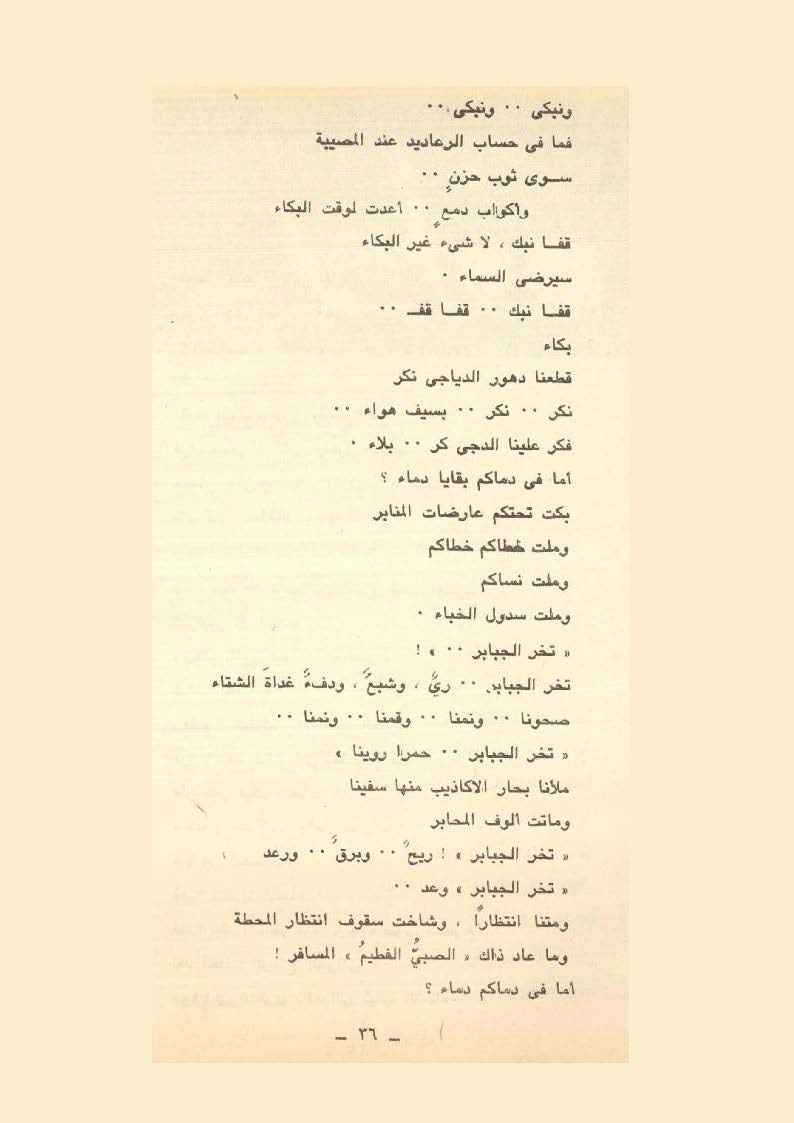 ونبكى ·· ونبكى ··
فما فى حساب الرعاديد عند المصيبة
ســوى ثوب حزنٍ ··
وأكواب دمعٍ ·· أعدت لوقت البكاء
قفــا نبك ، لا شىء غير البكاء
سيرضى السماء ·
قفــا نبك ·· قفــا قفــ ··
بكاء
قطعنا دهور الدياجى نكر
نكر ·· نكر ·· بسيف هواء ··
فكر علينا الدجى كر ·· بلاء ·
أما فى دماكم بقايا دماء ؟
بكت تحتكم عارضات المنابر
وملت خطاكم خطاكم
وملت نساكم
وملت سدول الخباء ·
« تخر الجبابر ·· » !
تخر الجبابر ·· رىٌّ ، وشبعٌ ، ودفءٌ غداةَ الشتاء
صحونا ·· ونمنا ·· وقمنا ·· ونمنا ··
« تخر الجبابر ·· حمرا روينا »
ملأنا بحار الاكاذيب منها سفينا
وماتت ألوف المحابر
« تخر الجبابر » ! ريحٌ ·· وبرقٌ ·· ورعد
« تخر الجبابر » وعد ··
ومتنا انتظاراً ، وشاخت سقوف انتظار المحطة
وما عاد ذاك « الصبىُّ الفطيمُ » المسافر !
أما فى دماكم دماء ؟
ــ ٣٦ ــ